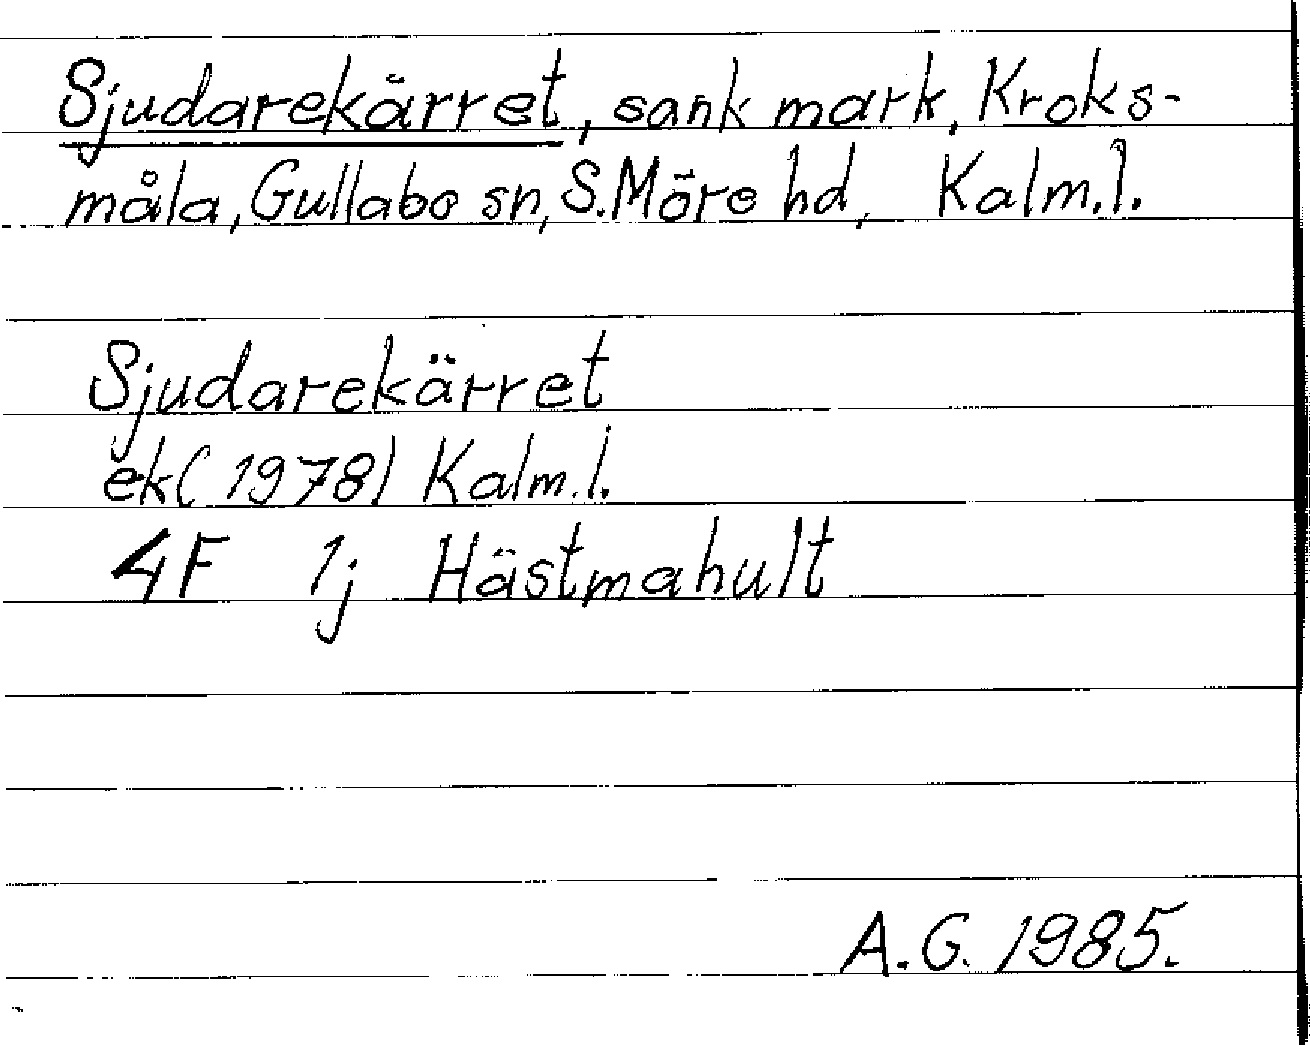 Sjudarekärret, sank mark, Kroks-
måla, Gullabo sn, S. Möre hd, Kalm. l.
Sjudarekärret
ek (1978) Kalm. l.
4F 1j Hästmahult
A. G. 1985.